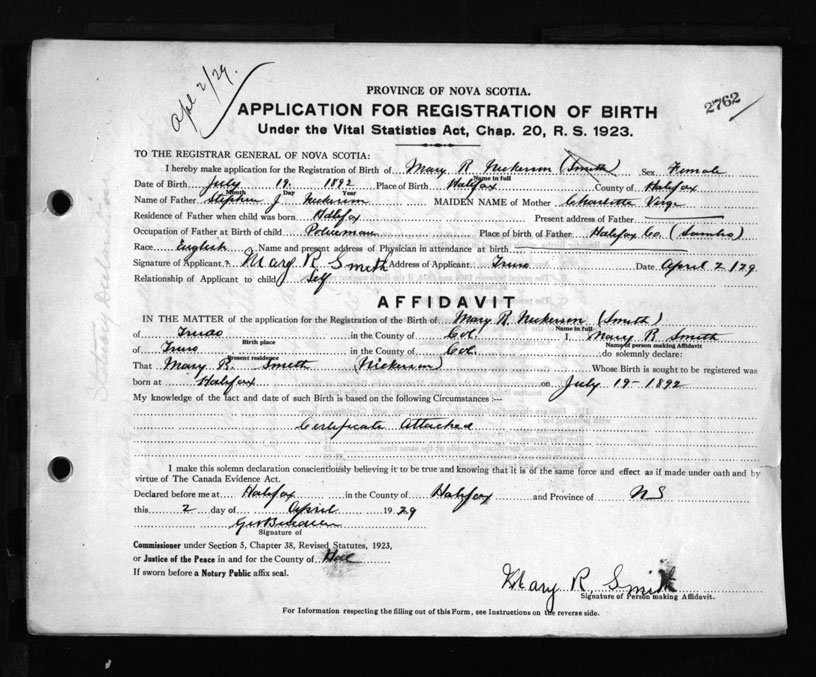 Apl 2/29.
PROVINCE OF NOVA SCOTIA.
2762
APPLICATION FOR REGISTRATION OF BIRTH
Under the Vital Statistics Act, Chap. 20, R. S. 1923.
TO THE REGISTRAR GENERAL OF NOVA SCOTIA:
I hereby make application for the Registration of Birth of Mary R Nickerson (Smith) Sex Female
Name in full
Date of Birth July 19. 1892 Place of Birth Halifax County of Halifax
Month Day Year
Name of Father Stephen J. Nickerson MAIDEN NAME of Mother Charlotte Verge
Residence of Father when child was born Halifax Present address of Father
Occupation of Father at Birth of child Policeman Place of birth of Father Halifax Co. (Sambro)
Race English Name and present address of Physician in attendance at birth
Signature of Applicant Mary R Smith Address of Applicant Truro Date April 2/29
Relationship of Applicant to child Self
AFFIDAVIT
IN THE MATTER of the application for the Registration of the Birth of Mary R. Nickerson (Smith)
Name in full
of Truro in the County of Col. I, Mary R Smith
Birth place Name of person making Affidavit
of Truro in the County of Col. do solemnly declare:
Present residence
That Mary R. Smith (Nickerson) Whose Birth is sought to be registered was
born at Halifax on July 19 - 1892
My knowledge of the fact and date of such Birth is based on the following Circumstances :—
Certificate Attached
I make this solemn declaration conscientiously believing it to be true and knowing that it is of the same force and effect as if made under oath and by
virtue of The Canada Evidence Act.
Declared before me at Halifax in the County of Halifax and Province of NS
this 2 day of April 1929
Signature of
Commissioner under Section 5, Chapter 38, Revised Statutes, 1923,
or Justice of the Peace in and for the County of Hal
If sworn before a Notary Public affix seal.
Mary R Smith
Signature of Person making Affidavit.
For Information respecting the filling out of this Form, see Instructions on the reverse side.